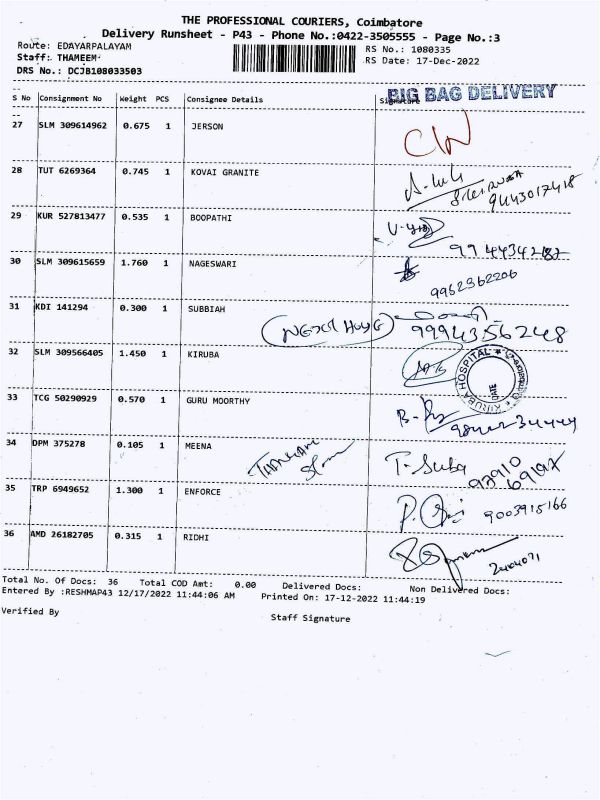 THE PROFESSIONAL COURIERS, Coimbatore
Delivery Runsheet - P43 - Phone No.:0422-3505555 - Page No.:3
Route: EDAYARPALAYAM RS No.: 1080335
Staff: THAMEEM RS Date: 17-Dec-2022
DRS No.: DCJB108033503
BIG BAG DELIVERY
S No Consignment No Weight PCS Consignee Details Signature
27 SLM 309614962 0.675 1 JERSON
28 TUT 6269364 0.745 1 KOVAI GRANITE
9443017418
29 KUR 527813477 0.535 1 BOOPATHI
99444342182
30 SLM 309615659 1.760 1 NAGESWARI
9962362206
31 KDI 141294 0.300 1 SUBBIAH
9994356248
32 SLM 309566405 1.450 1 KIRUBA
KIRUBA HOSPITAL
DATE
33 TCG 50290929 0.570 1 GURU MOORTHY
34 DPM 375278 0.105 1 MEENA
T. Suba
35 TRP 6949652 1.300 1 ENFORCE
9003915166
36 AMD 26182705 0.315 1 RIDHI
Total No. Of Docs: 36 Total COD Amt: 0.00 Delivered Docs: Non Delivered Docs:
Entered By :RESHMAP43 12/17/2022 11:44:06 AM Printed On: 17-12-2022 11:44:19
Verified By Staff Signature